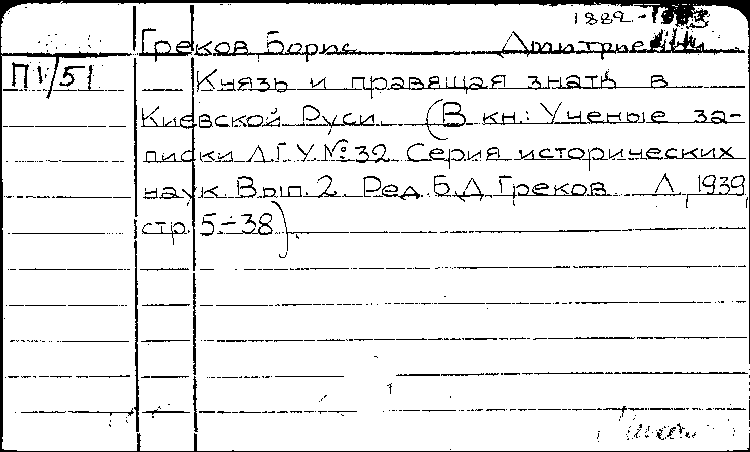 1882-
Греков, Борис Дмитриевич
П1/51
Князь и правящая знать в
Киевской Руси. (В кн.: Ученые за-
писки Л.Г.У. № 32. Серия исторических
наук. Вып. 2. Ред. Б.Д. Греков. Л., 1939,
стр. 5÷38).